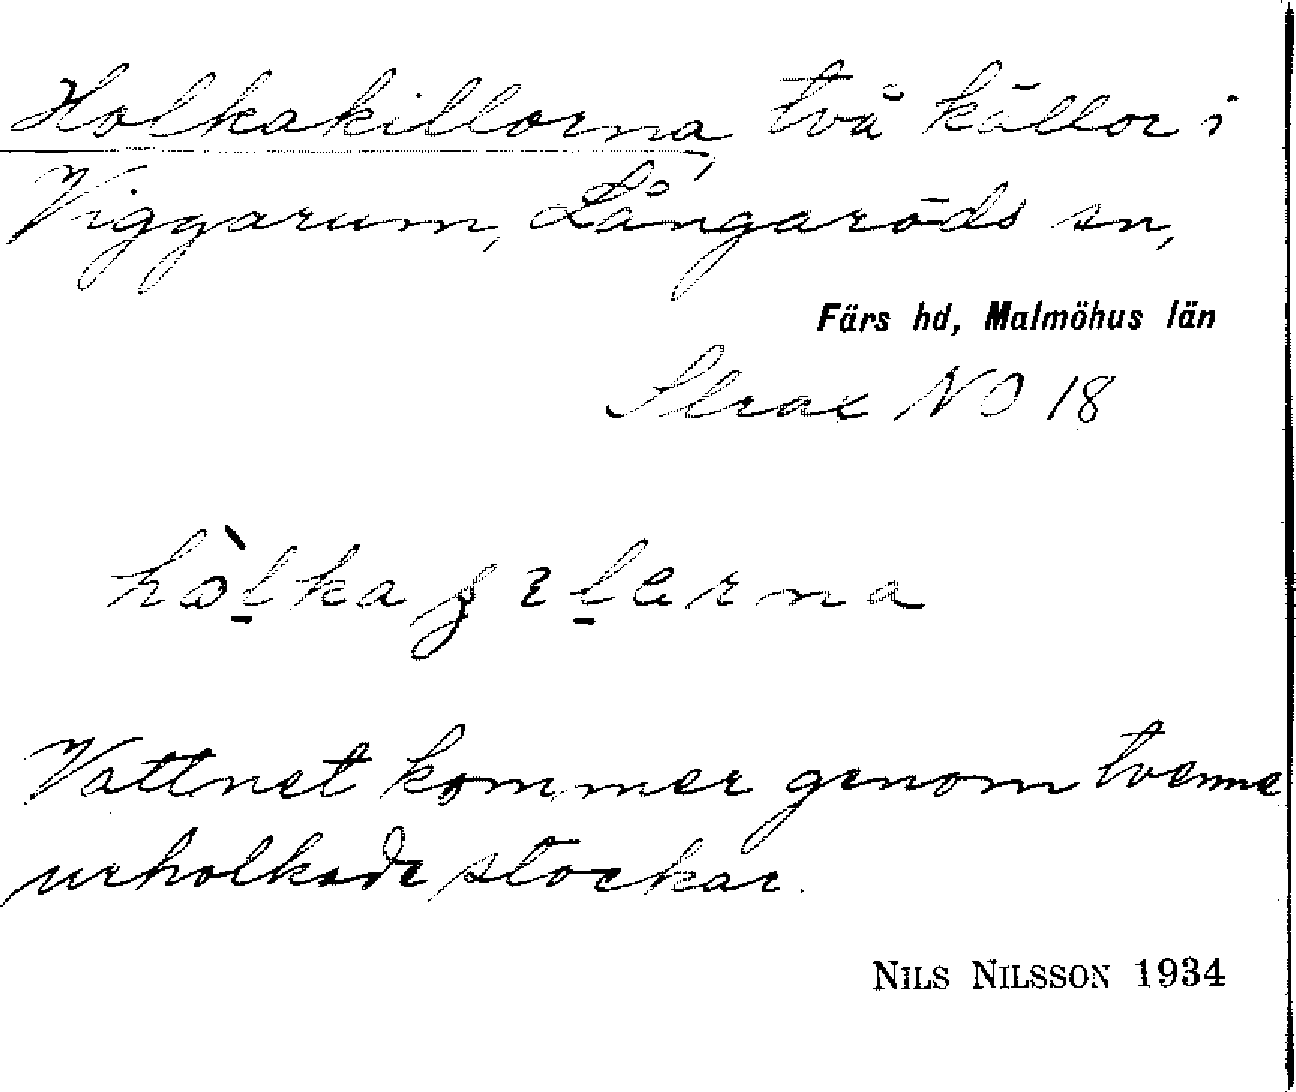 Holkakillorna, två källor i
Viggarum, Långaröds sn,
Färs hd, Malmöhus län
Strax NO 18
Vattnet kommer genom tvenne
urholkade stockar.
NILS NILSSON 1934